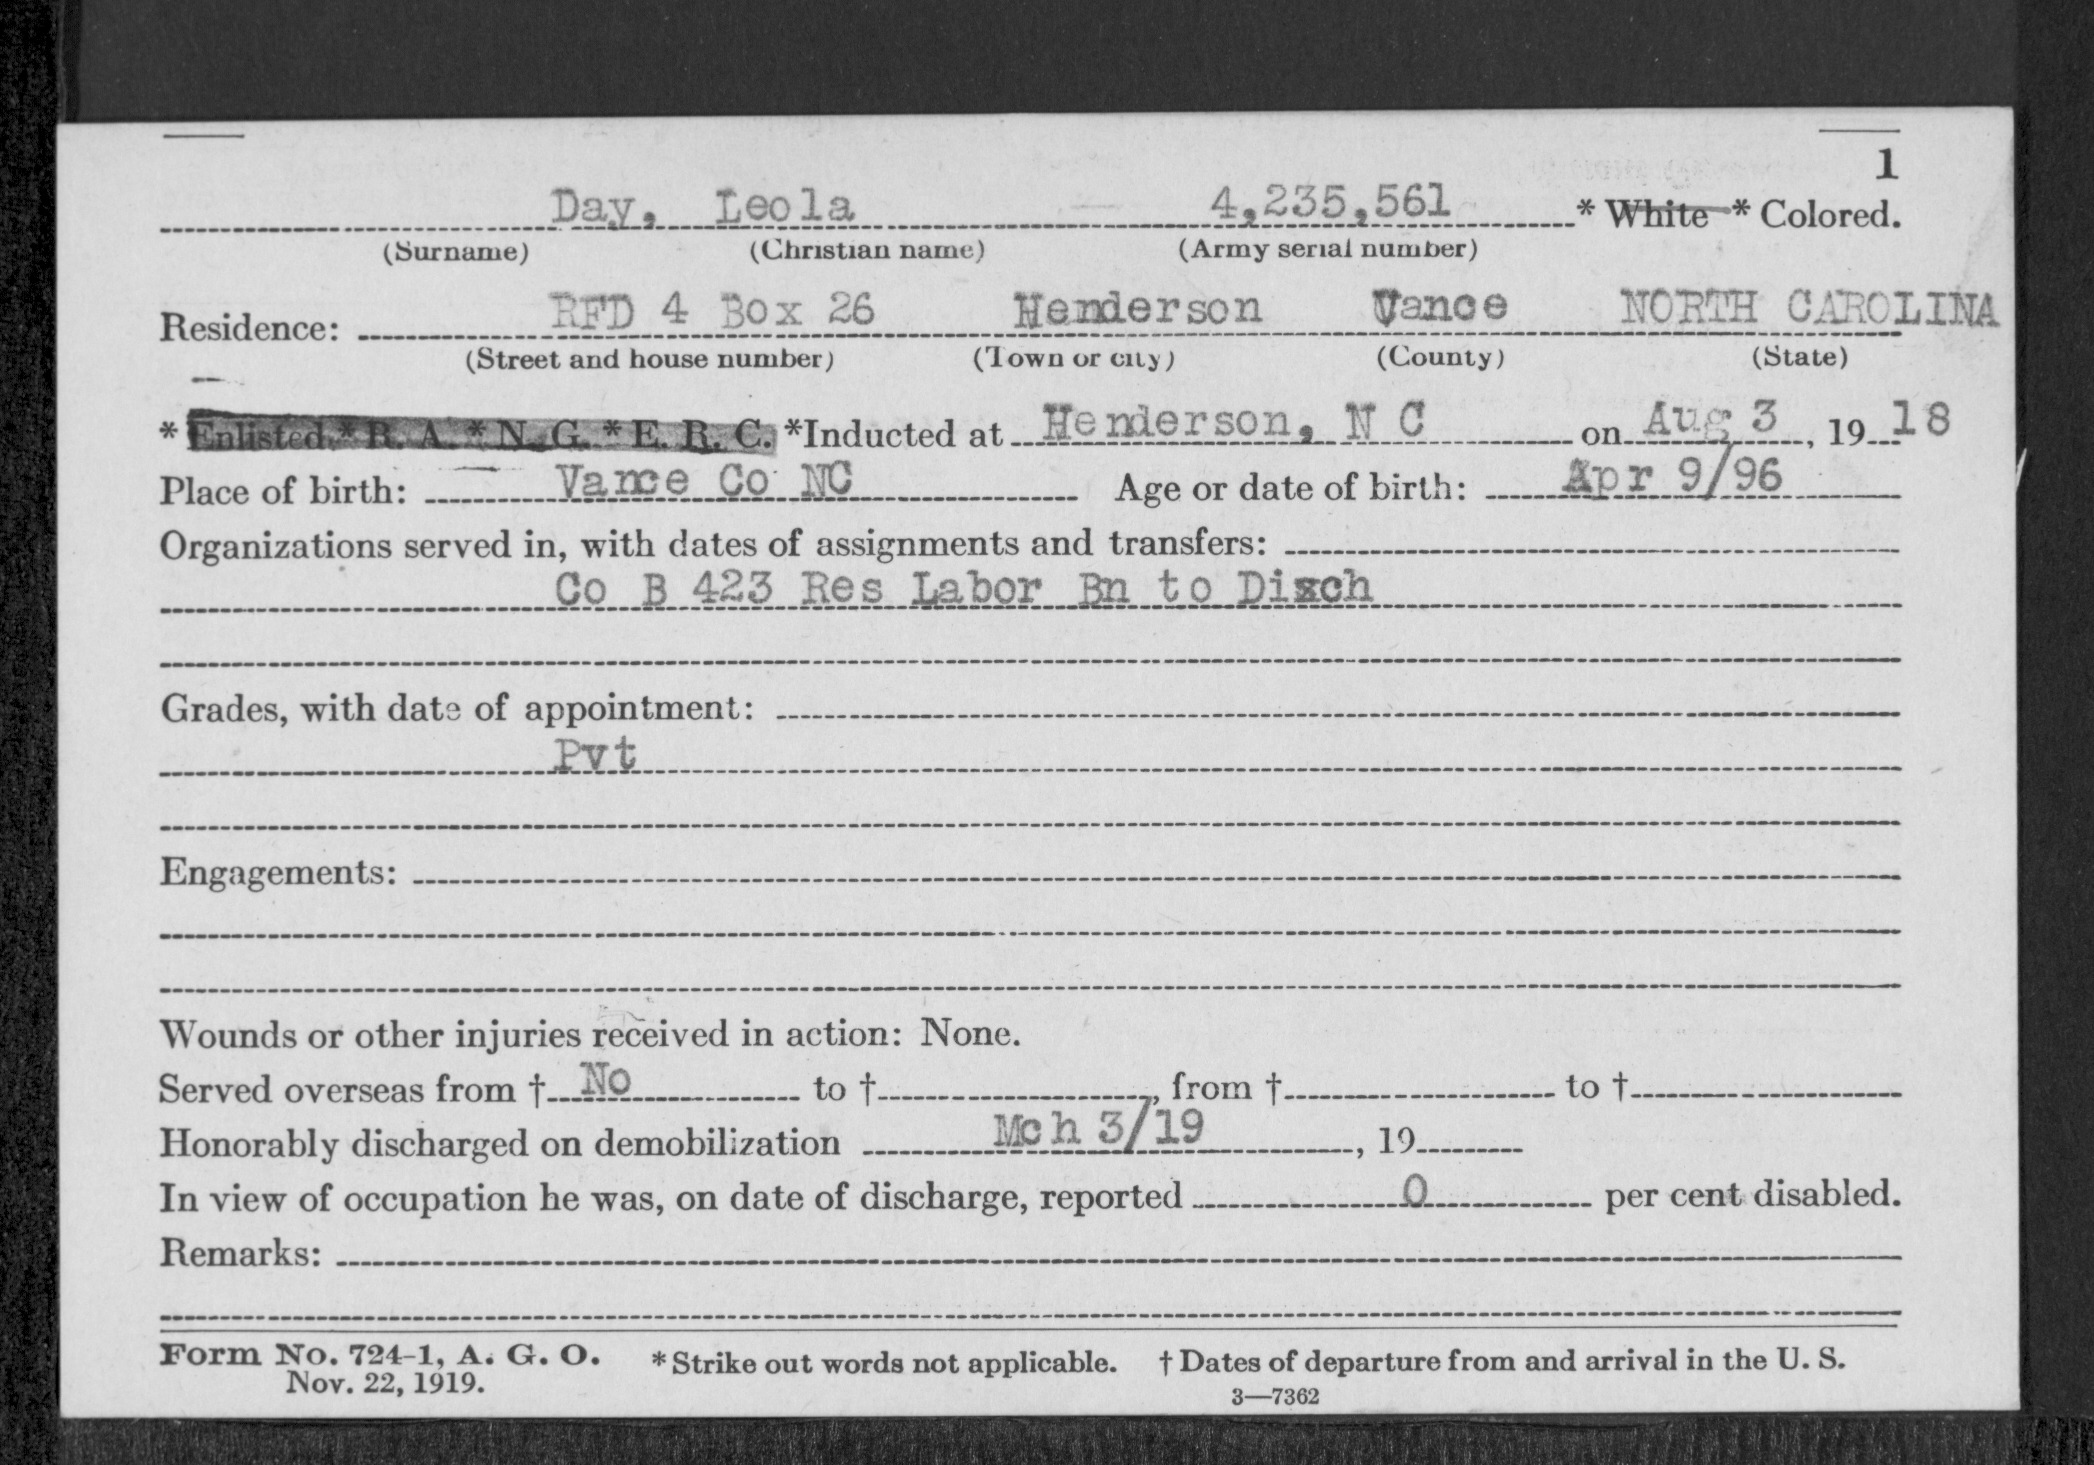 1
Day, Leola 4,235,561 * White * Colored.
(Surname) (Christian name) (Army serial number)
Residence: RFD 4 Box 26 Henderson Vance NORTH CAROLINA
(Street and house number) (Town or city) (County) (State)
* Enlisted * R. A. * N. G. * E. R. C. *Inducted at Henderson, N C on Aug 3, 1918
Place of birth: Vance Co NC Age or date of birth: Apr 9/96
Organizations served in, with dates of assignments and transfers:
Co B 423 Res Labor Bn to Disch
Grades, with date of appointment:
Pvt
Engagements:
Wounds or other injuries received in action: None.
Served overseas from † No to †, from † to †
Honorably discharged on demobilization Mch 3/19, 19
In view of occupation he was, on date of discharge, reported 0 per cent disabled.
Remarks:
Form No. 724-1, A. G. O. *Strike out words not applicable. † Dates of departure from and arrival in the U. S.
Nov. 22, 1919.
3—7362